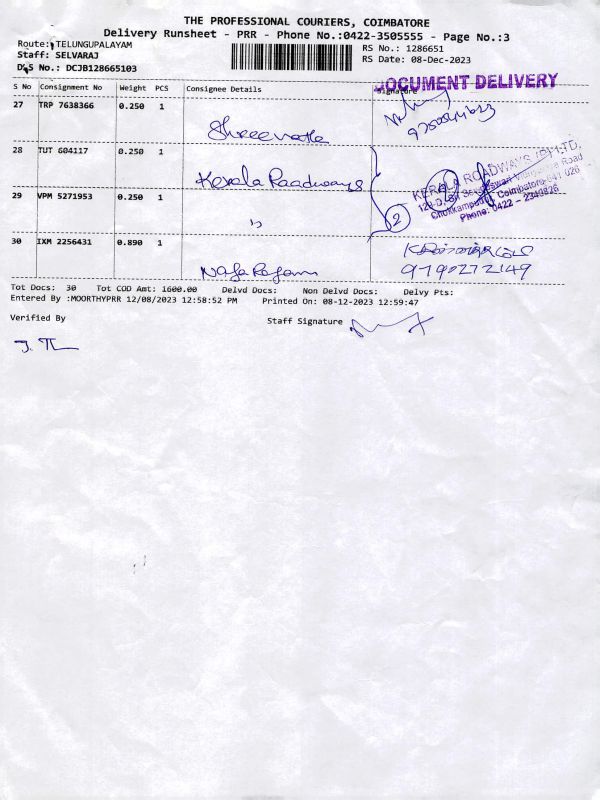 THE PROFESSIONAL COURIERS, COIMBATORE
Delivery Runsheet - PRR - Phone No.:0422-3505555 - Page No.:3
Route: TELUNGUPALAYAM
Staff: SELVARAJ
D S No.: DCJB128665103
RS No.: 1286651
RS Date: 08-Dec-2023
DOCUMENT DELIVERY
S No Consignment No Weight PCS Consignee Details Signature
27 TRP 7638366 0.250 1
28 TUT 604117 0.250 1 Kerala Roadways
KERALA ROADWAYS (P) LTD.
Coimbatore-641 026
Phone: 0422 - 2349826
29 VPM 5271953 0.250 1 " 2
30 IXM 2256431 0.890 1
9790272149
Tot Docs: 30 Tot COD Amt: 1600.00 Delvd Docs: Non Delvd Docs: Delvy Pts:
Entered By :MOORTHYPRR 12/08/2023 12:58:52 PM Printed On: 08-12-2023 12:59:47
Verified By Staff Signature